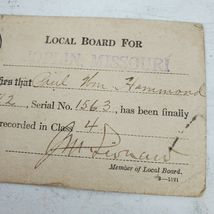 LOCAL BOARD FOR
JOPLIN, MISSOURI
firs that Paul Wm Hammond
2, Serial No. 1563, has been finally
recorded in Class 4
Member of Local Board.